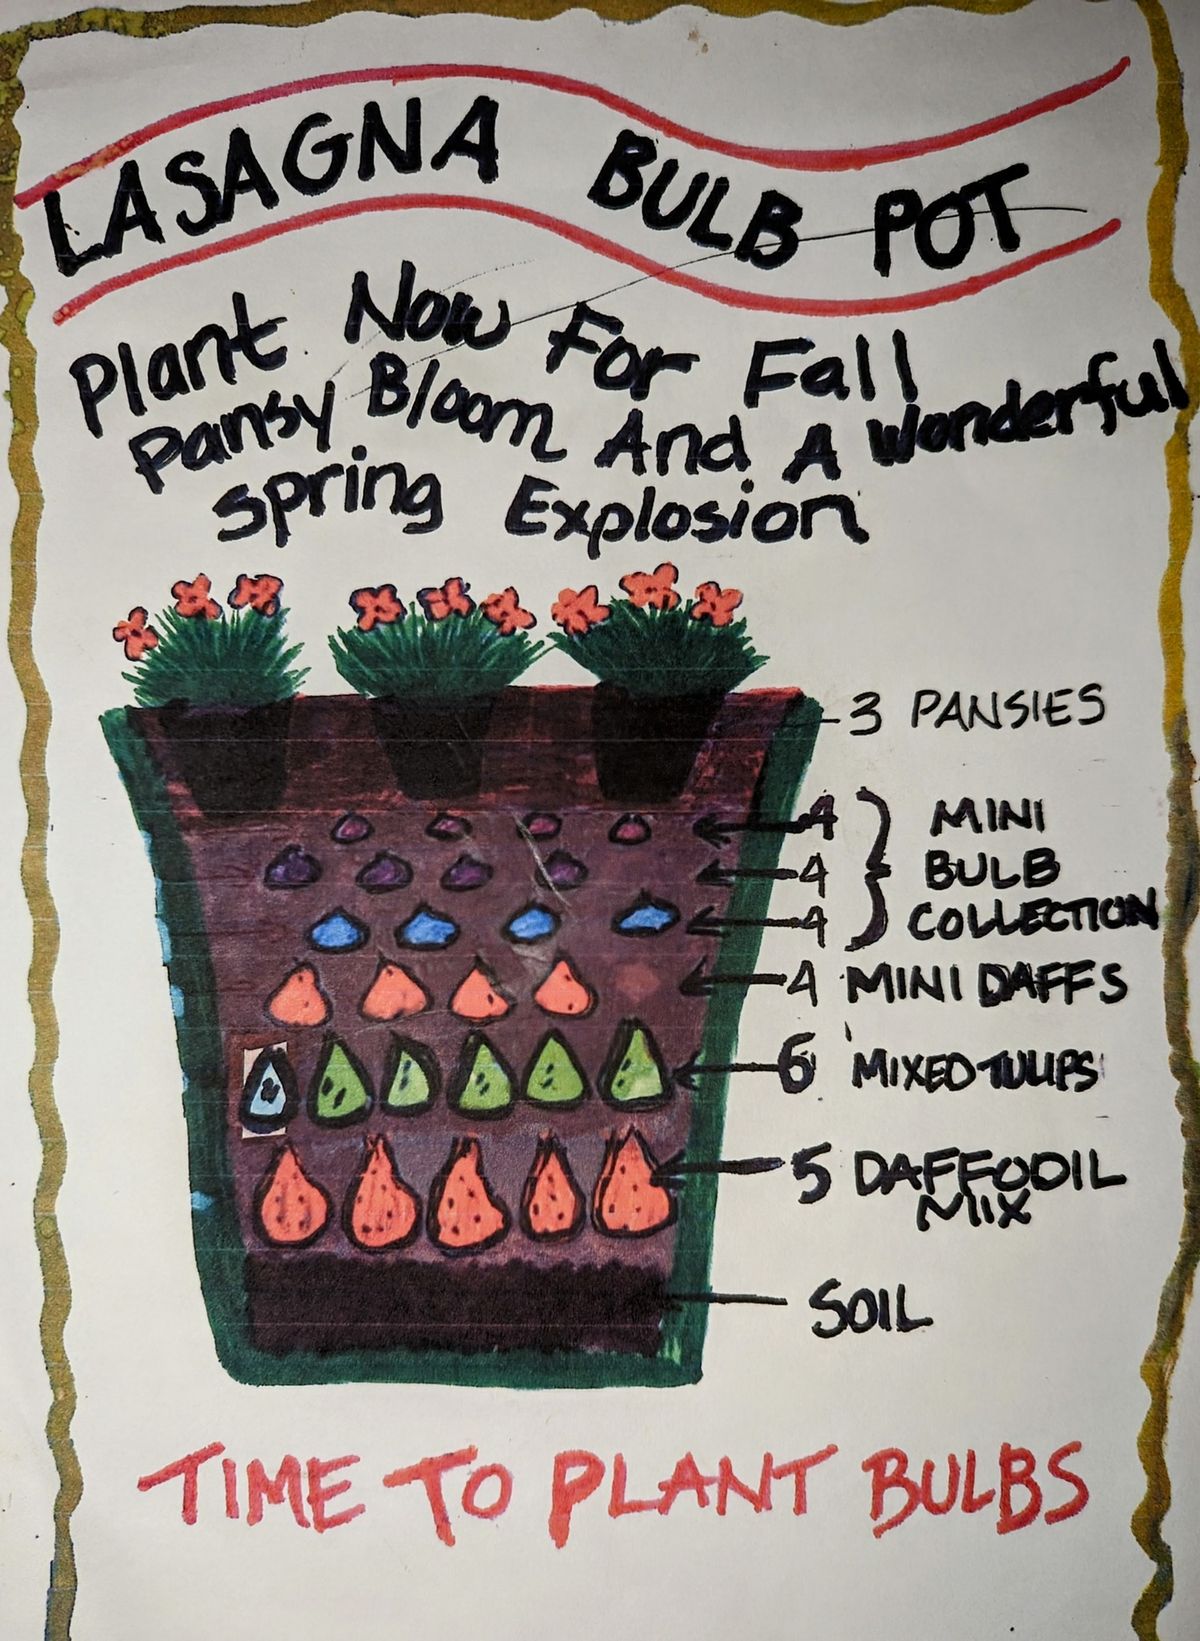 LASAGNA BULB POT
Plant Now For Fall
Pansy Bloom And A Wonderful
Spring Explosion
3 PANSIES
4 MINI
4 BULB
4 COLLECTION
4 MINI DAFFS
6 MIXED TULIPS
5 DAFFODIL
MIX
SOIL
TIME TO PLANT BULBS